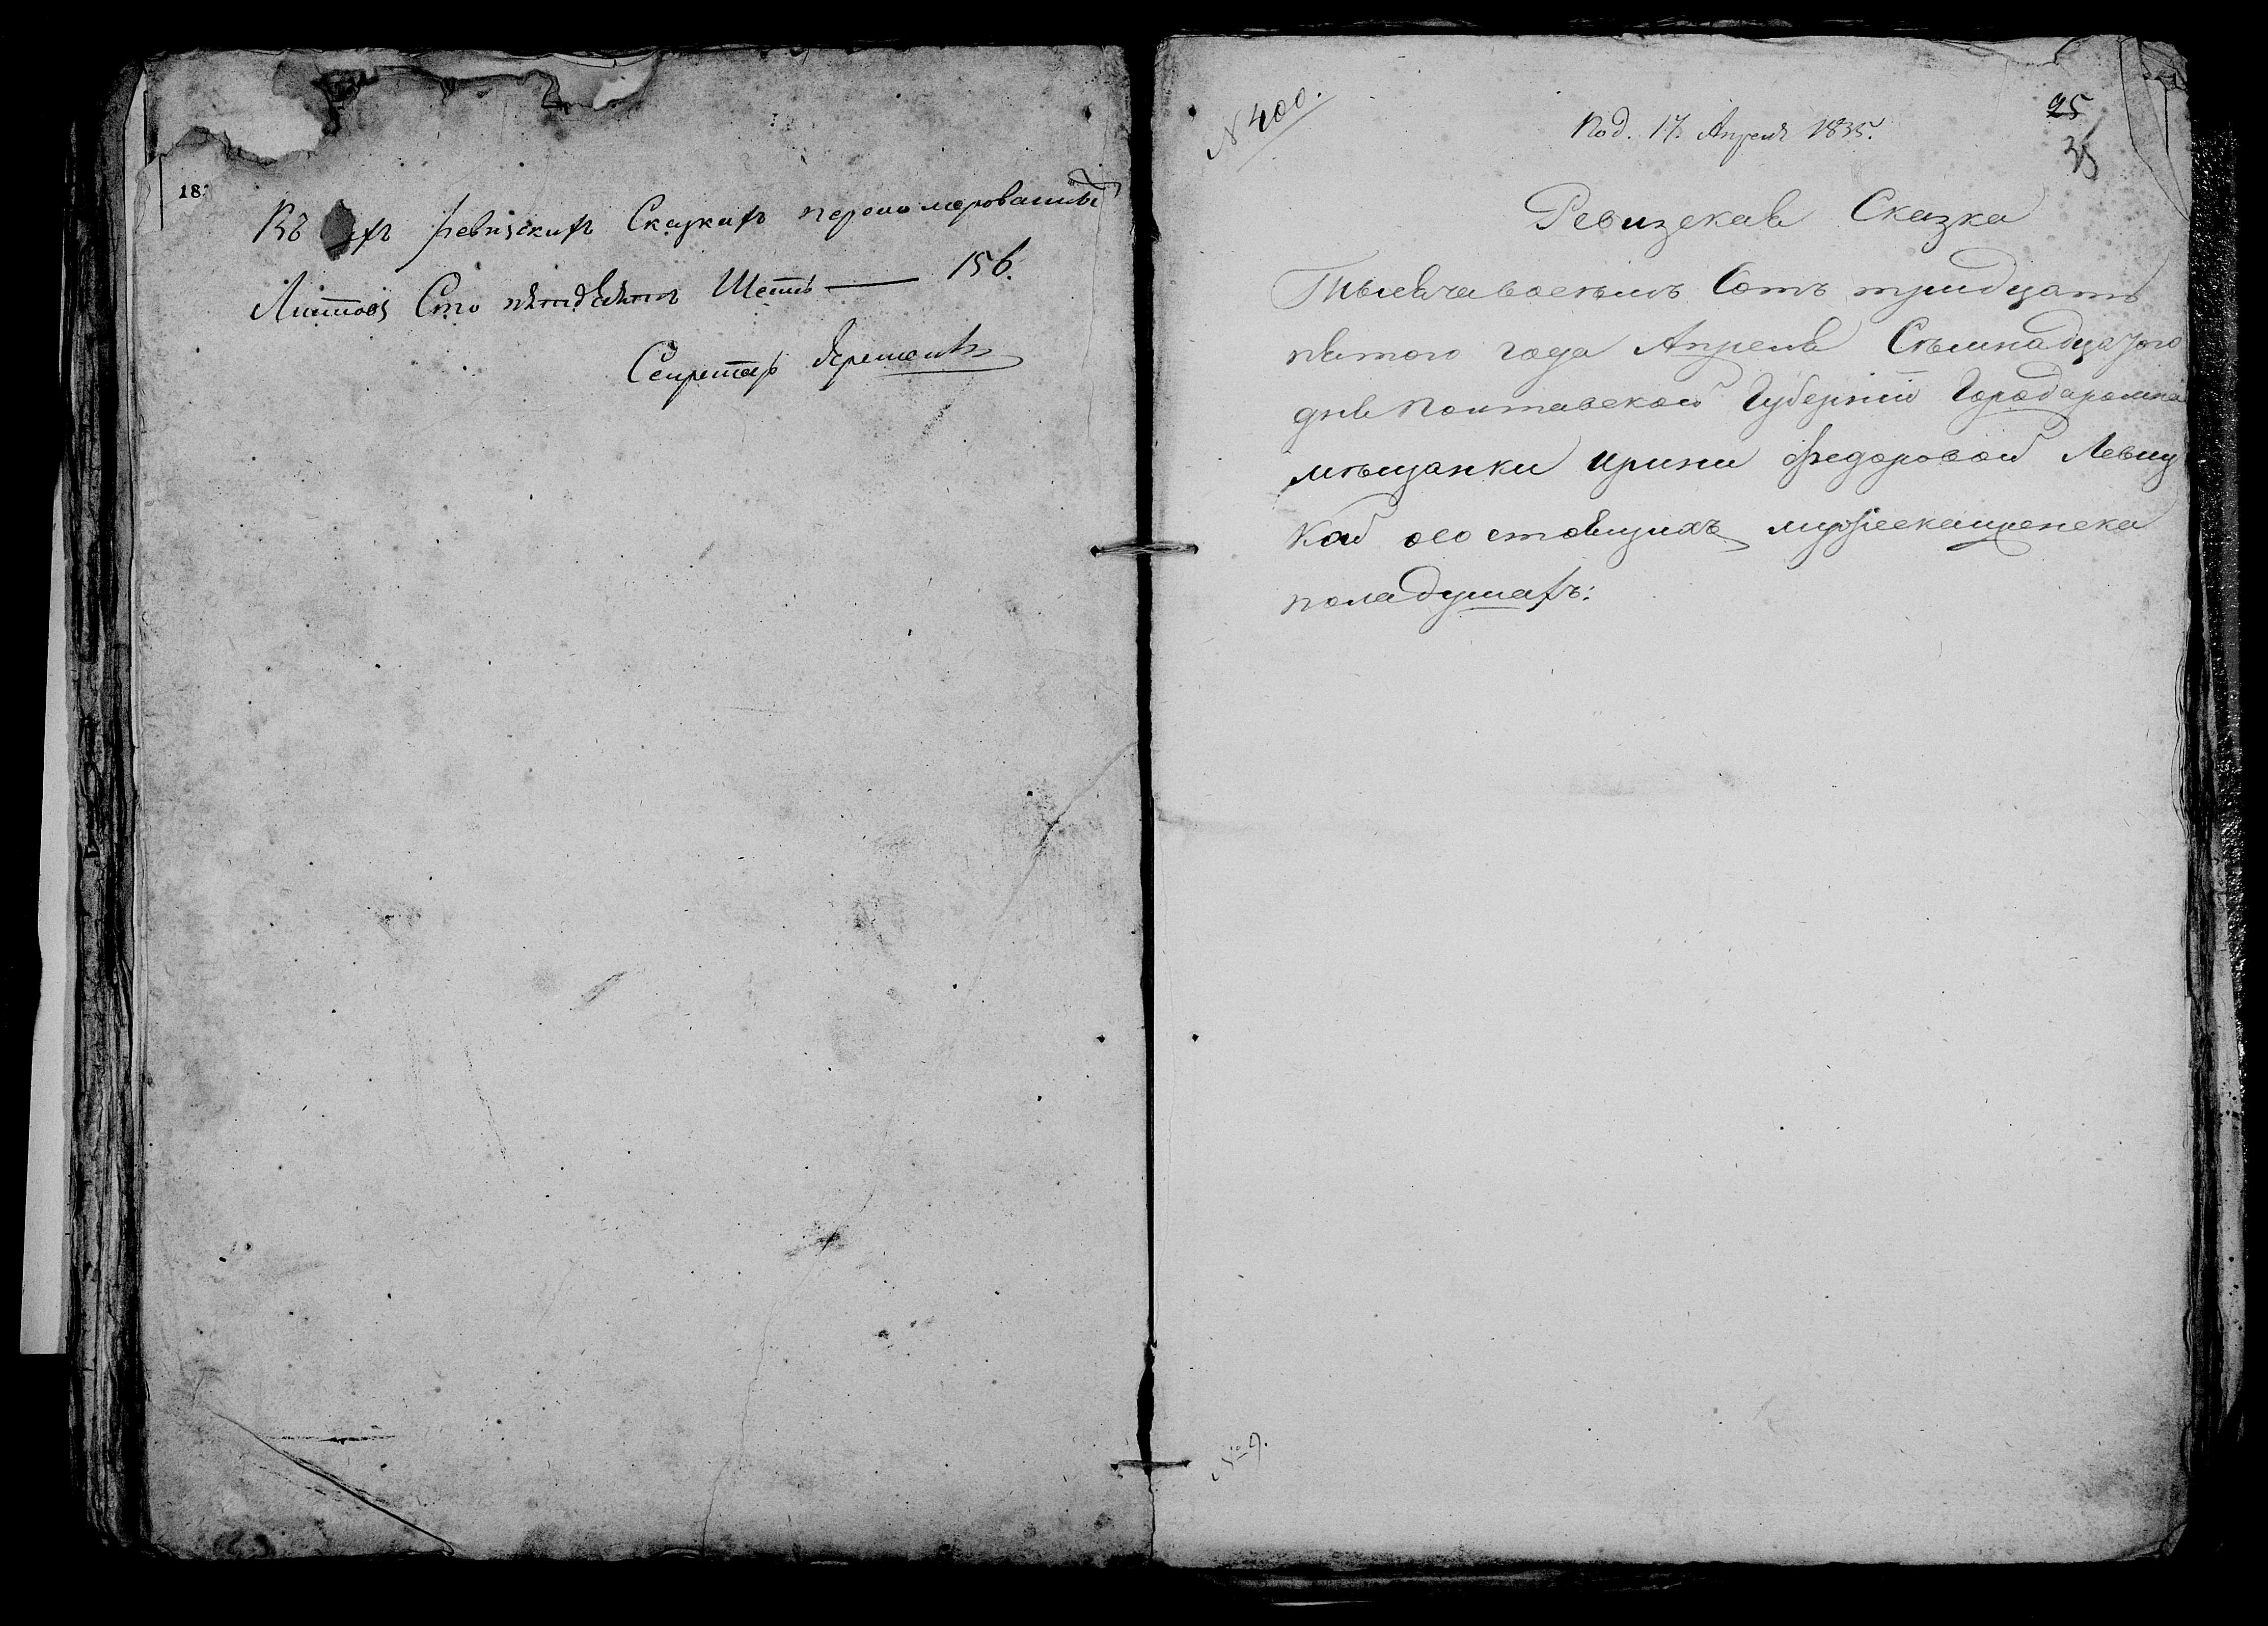 18
Въ сихъ ревизскихъ Сказкахъ перономерованныхъ
Листовъ Сто пятдесятъ Шесть — 156.
Секретарь
N 400.
Под. 17 Апреля 1835.
25
35
Ревизская Сказка
Тысяча восемь Сотъ тридцать
пятого года Апреля Семнадцатого
дня Полтавской Губерніи Города ромна
мещанки ирини Федоровой Левиц
Кой осостоящихъ мужеска иженска
пола душахъ:
№ 9.